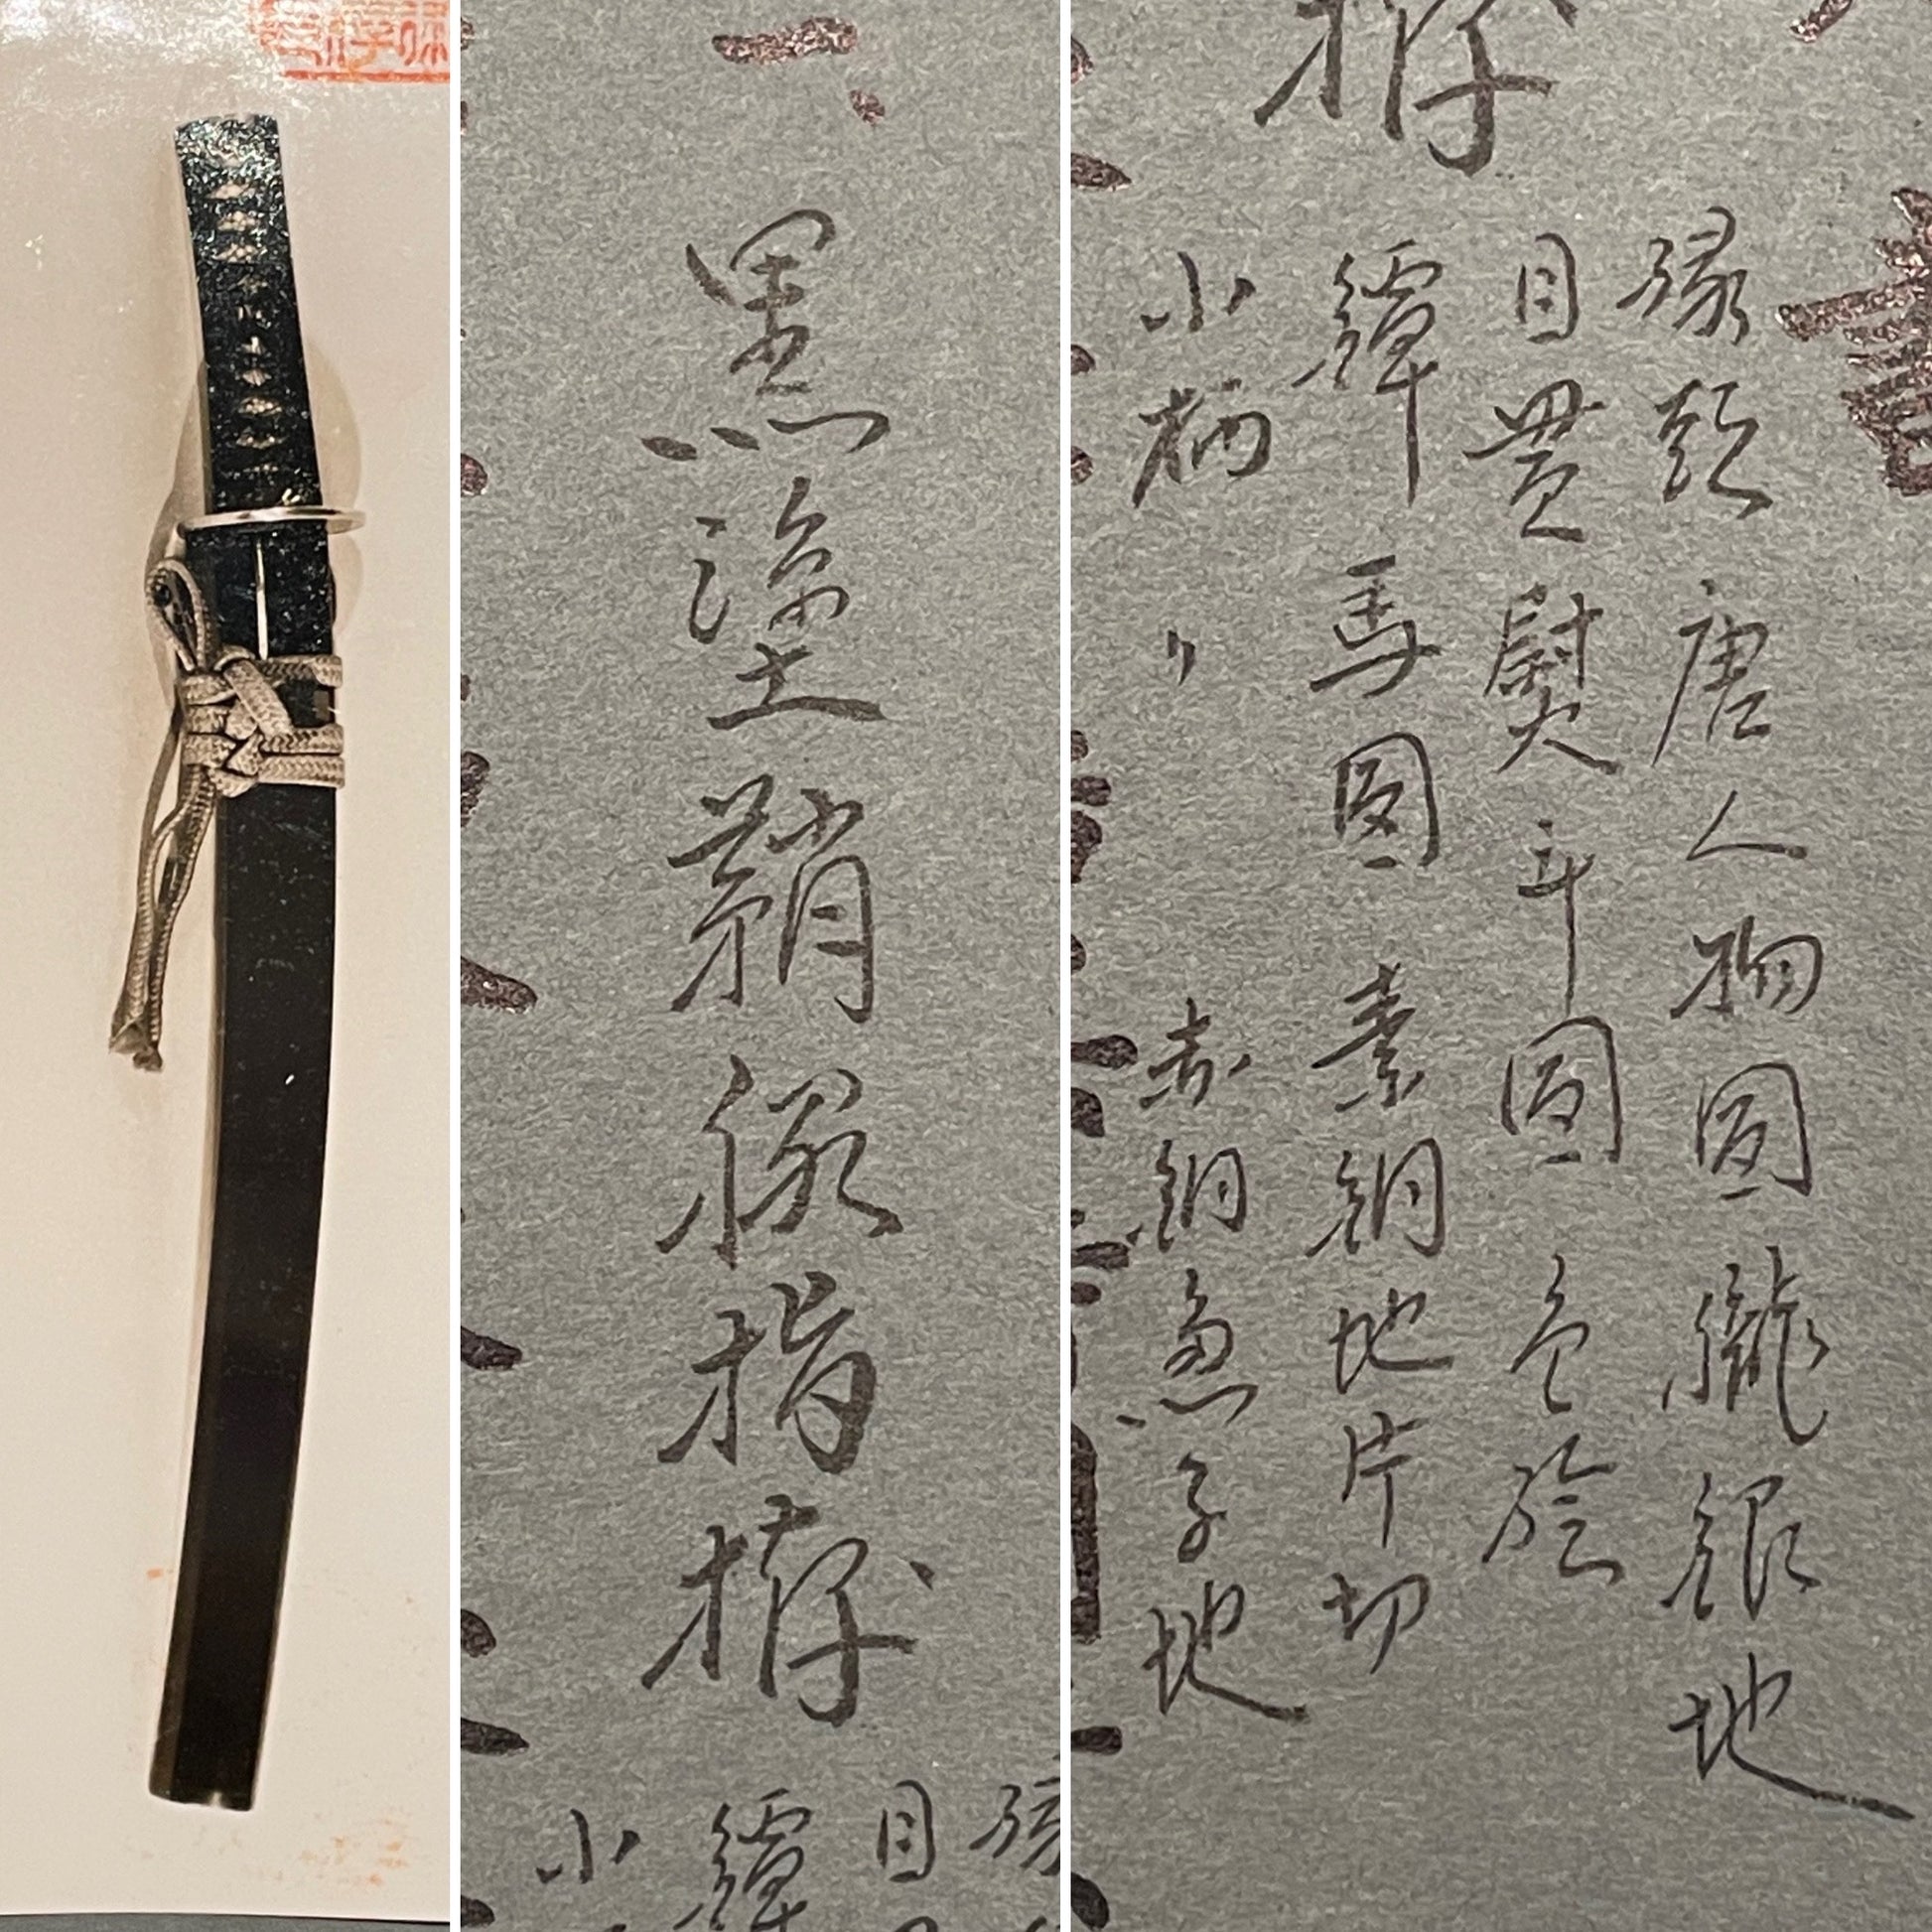 一、
黒塗鞘脇指拵
縁
目
鐔
小
拵
縁頭 唐人物圖 朧銀地
目貫 熨斗圖 色絵
鐔 馬圖 素銅地片切
小柄 〃 赤銅魚子地